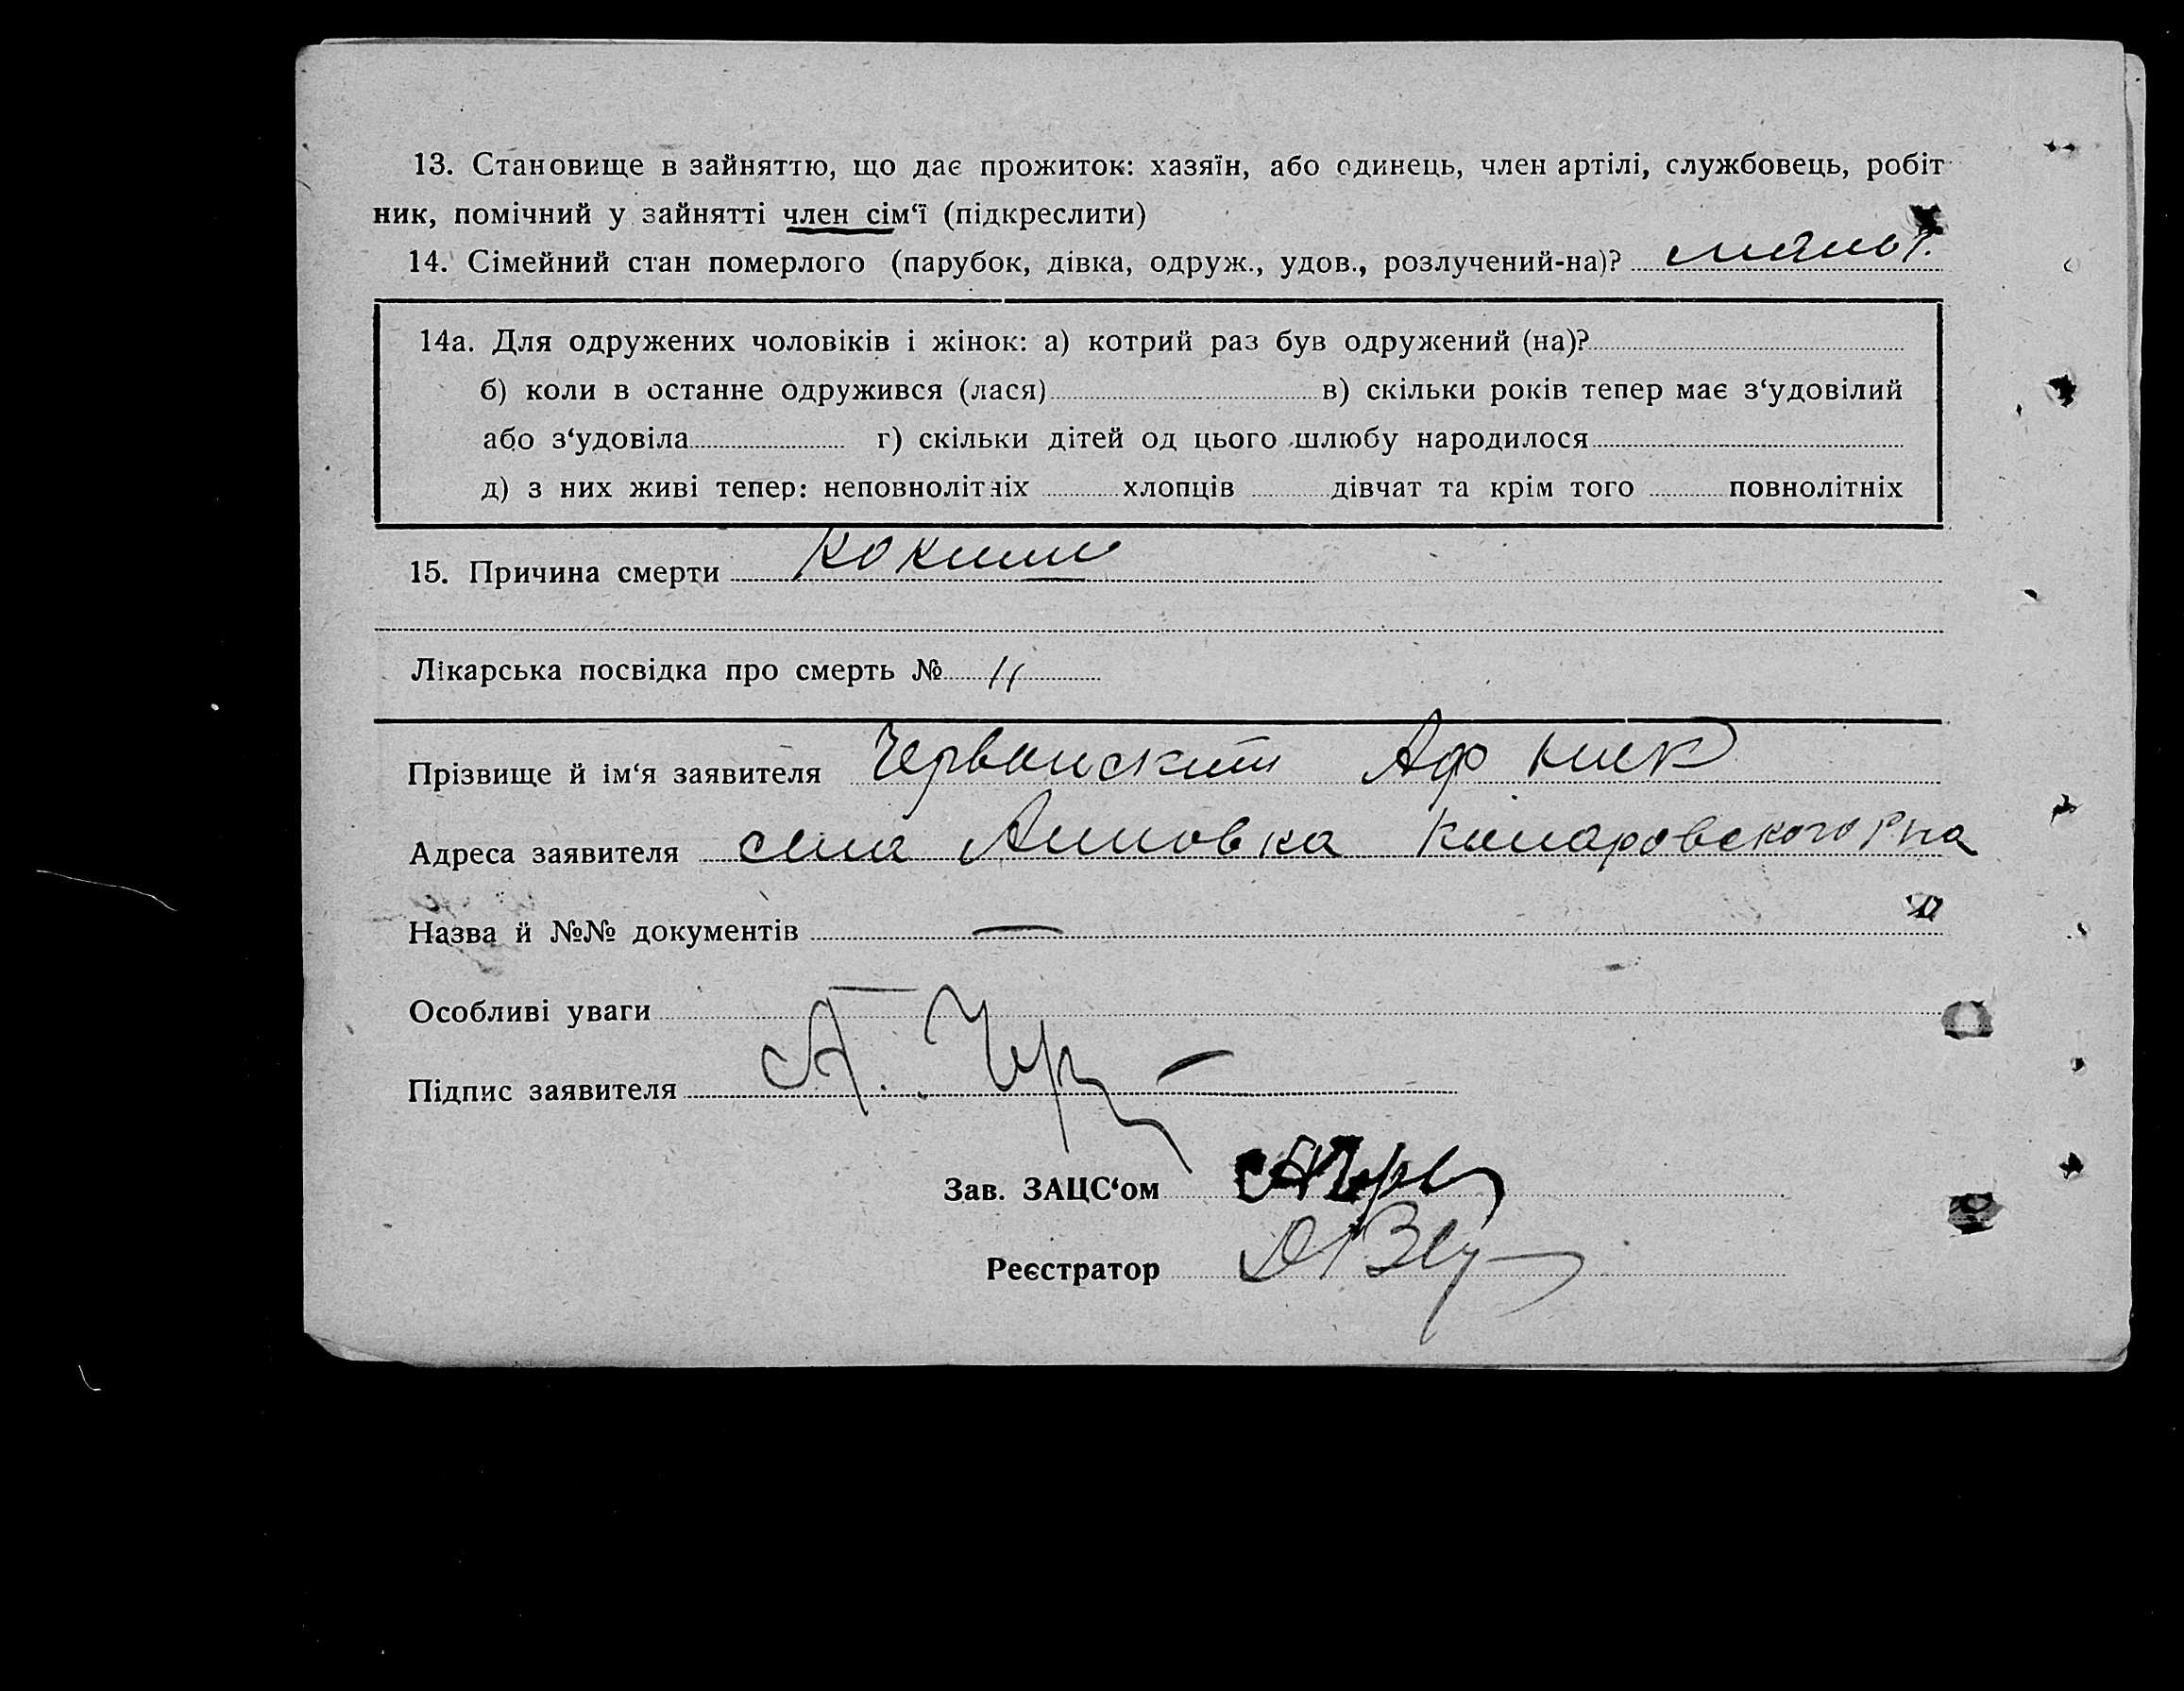 13. Становище в зайняттю, що дає прожиток: хазяїн, або одинець, член артілі, службовець, робіт
ник, помічний у зайнятті член сім‘ї (підкреслити)
14. Сімейний стан померлого (парубок, дівка, одруж., удов., розлучений-на)?
14а. Для одружених чоловіків і жінок: а) котрий раз був одружений (на)?
б) коли в останне одружився (лася) в) скільки років тепер має з‘удовілий
або з‘удовіла г) скільки дітей од цього шлюбу народилося
д) з них живі тепер: неповнолітніх хлопців дівчат та крім того повнолітніх
15. Причина смерти Коклиш
Лікарська посвідка про смерть № 11
Прізвище й ім‘я заявителя Червинский Аф Ник
Адреса заявителя села Комаровского Рна
Назва й №№ документів —
Особливі уваги —
Підпис заявителя А. Чер
Зав. ЗАЦС‘ом
Реєстратор